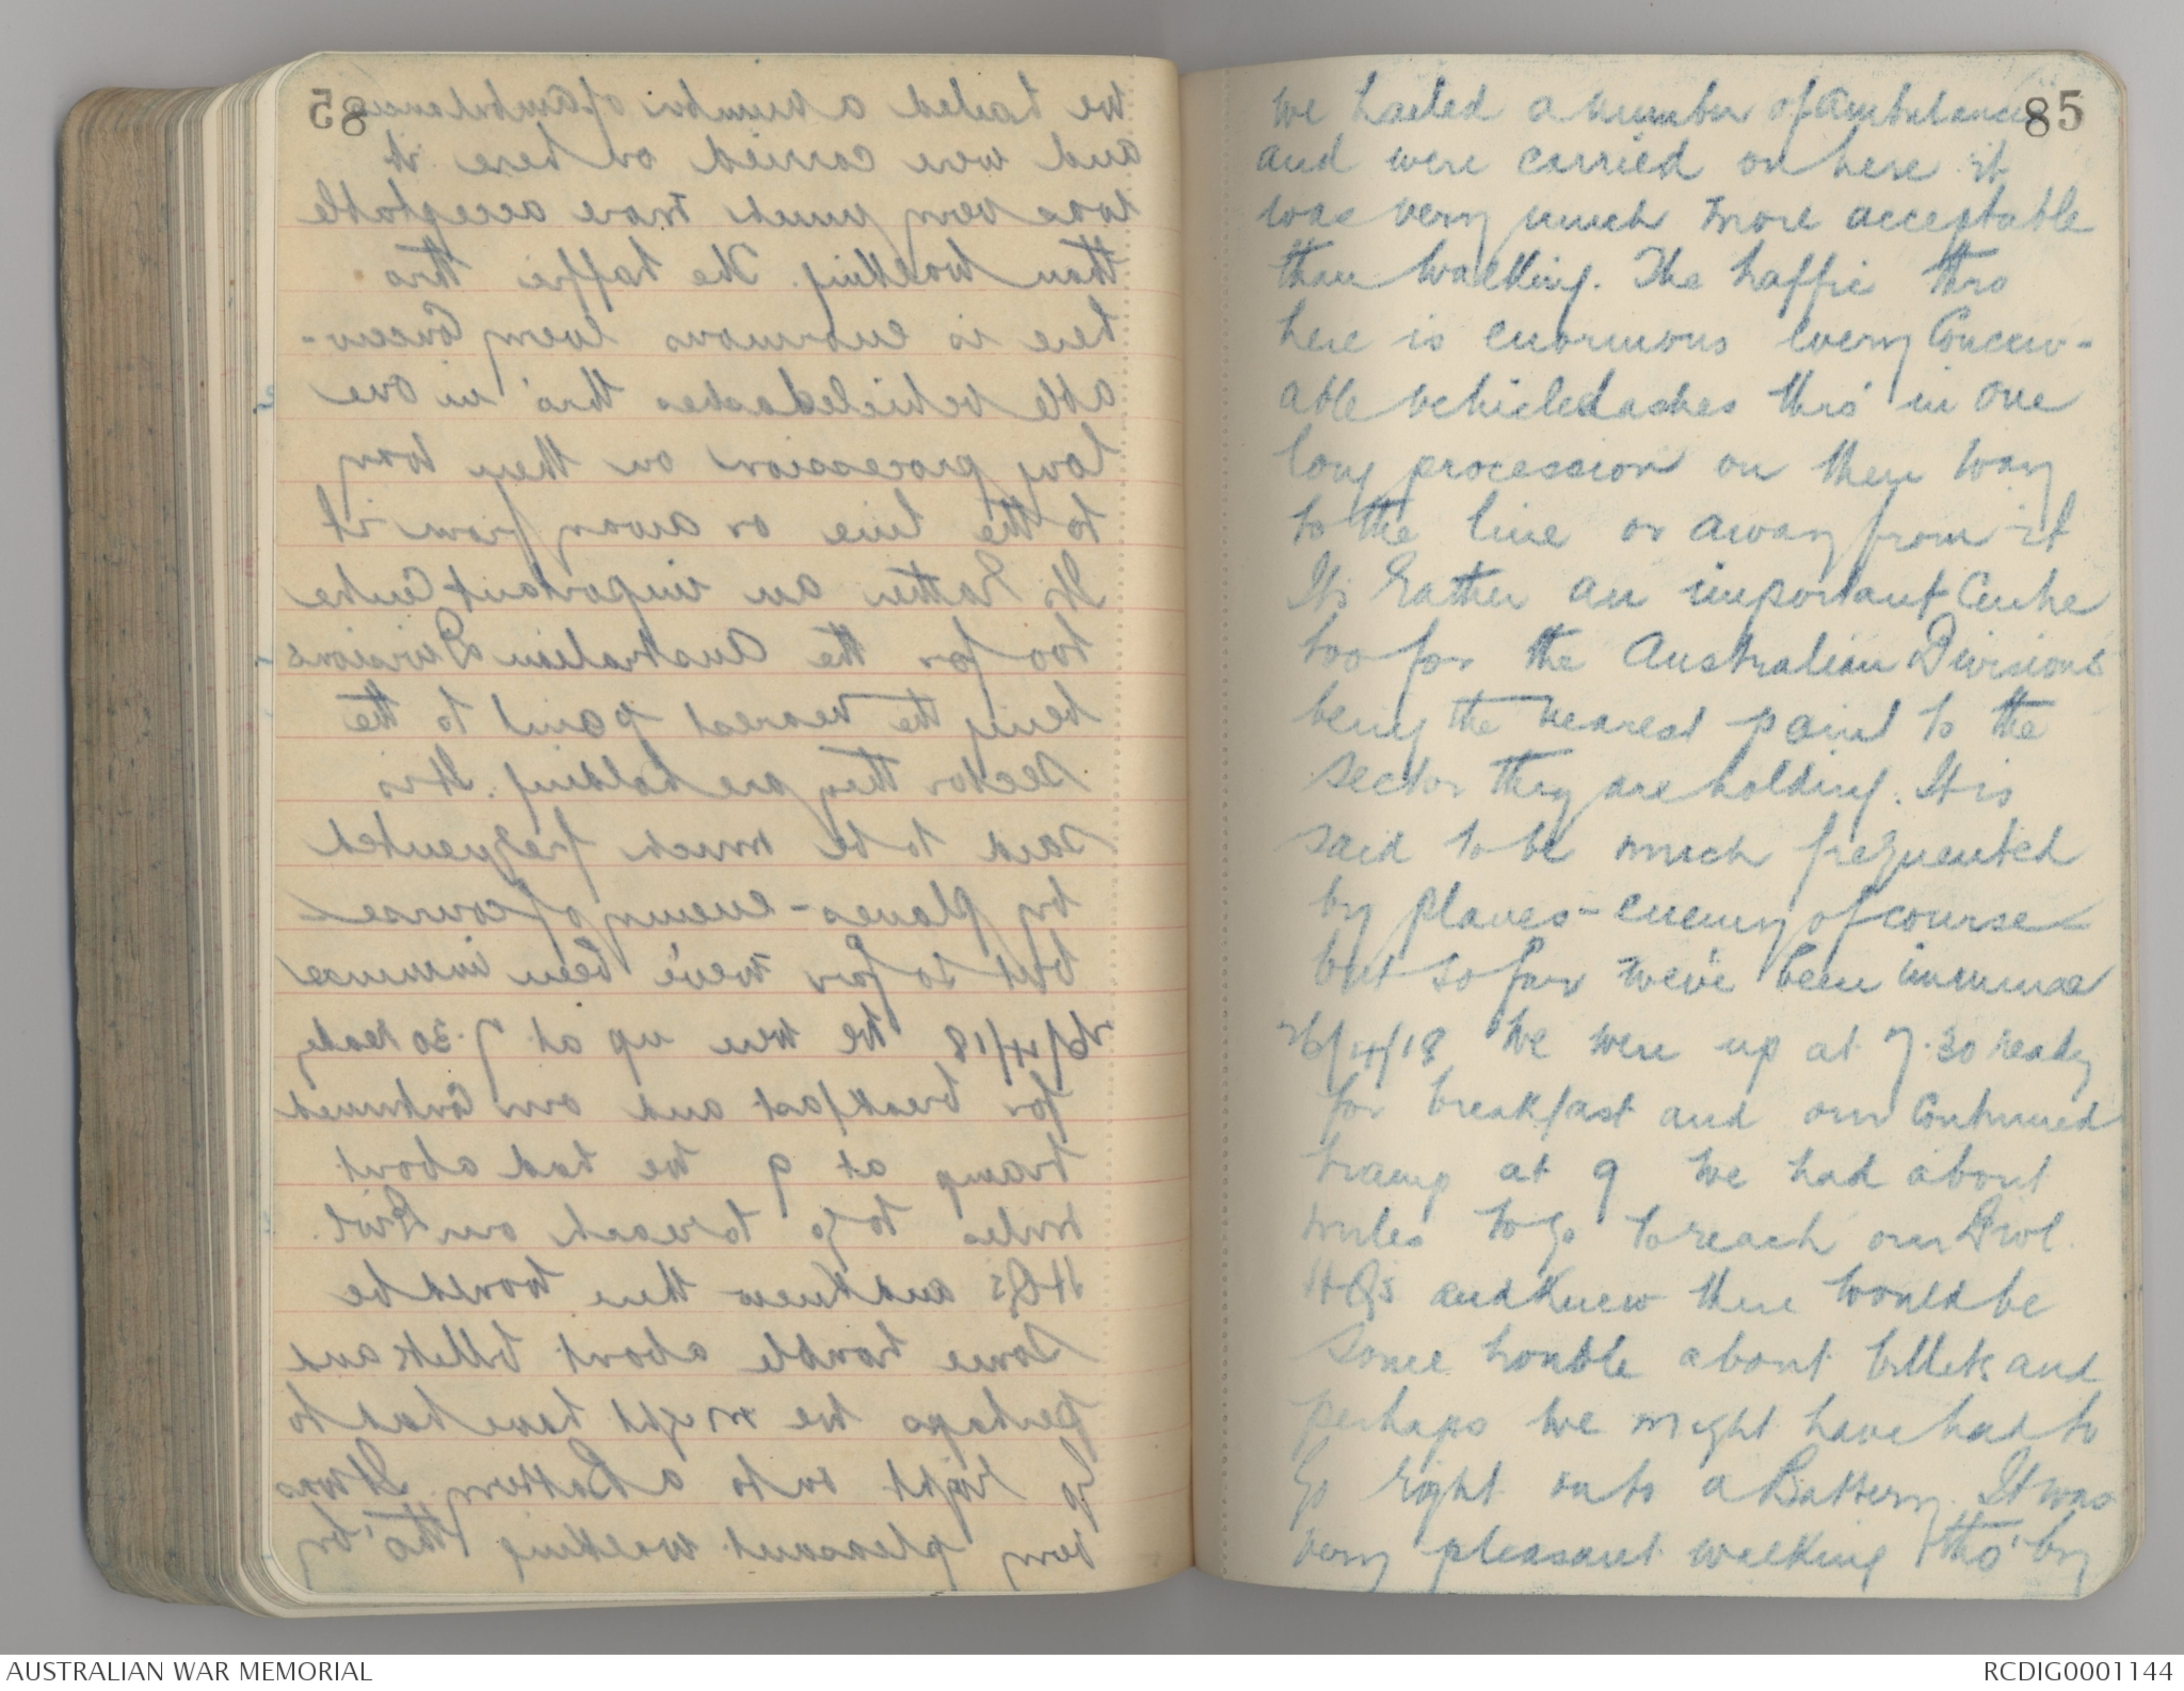 85
we hailed a number of ambulances
and were carried on here it
was very much more acceptable
than walking. The traffic thro
here is enormous every Conceiv-
able vehicle dashes thro' in one
long procession on their way
to the line or away from it
Its Rather an important Centre
too for the Australian Divisions
being the nearest point to the
sector they are holding. It is
said to be much frequented
by planes - enemy of course
but so far we've been immune
26/4/18 We were up at 7.30 ready
for breakfast and our Continued
tramp at 9 We had about
miles to go to reach our Divl.
HQs and knew there would be
some trouble about billets and
perhaps we might have had to
Go right onto a Battery. It was
very pleasant walking tho' by
AUSTRALIAN WAR MEMORIAL
RCDIG0001144